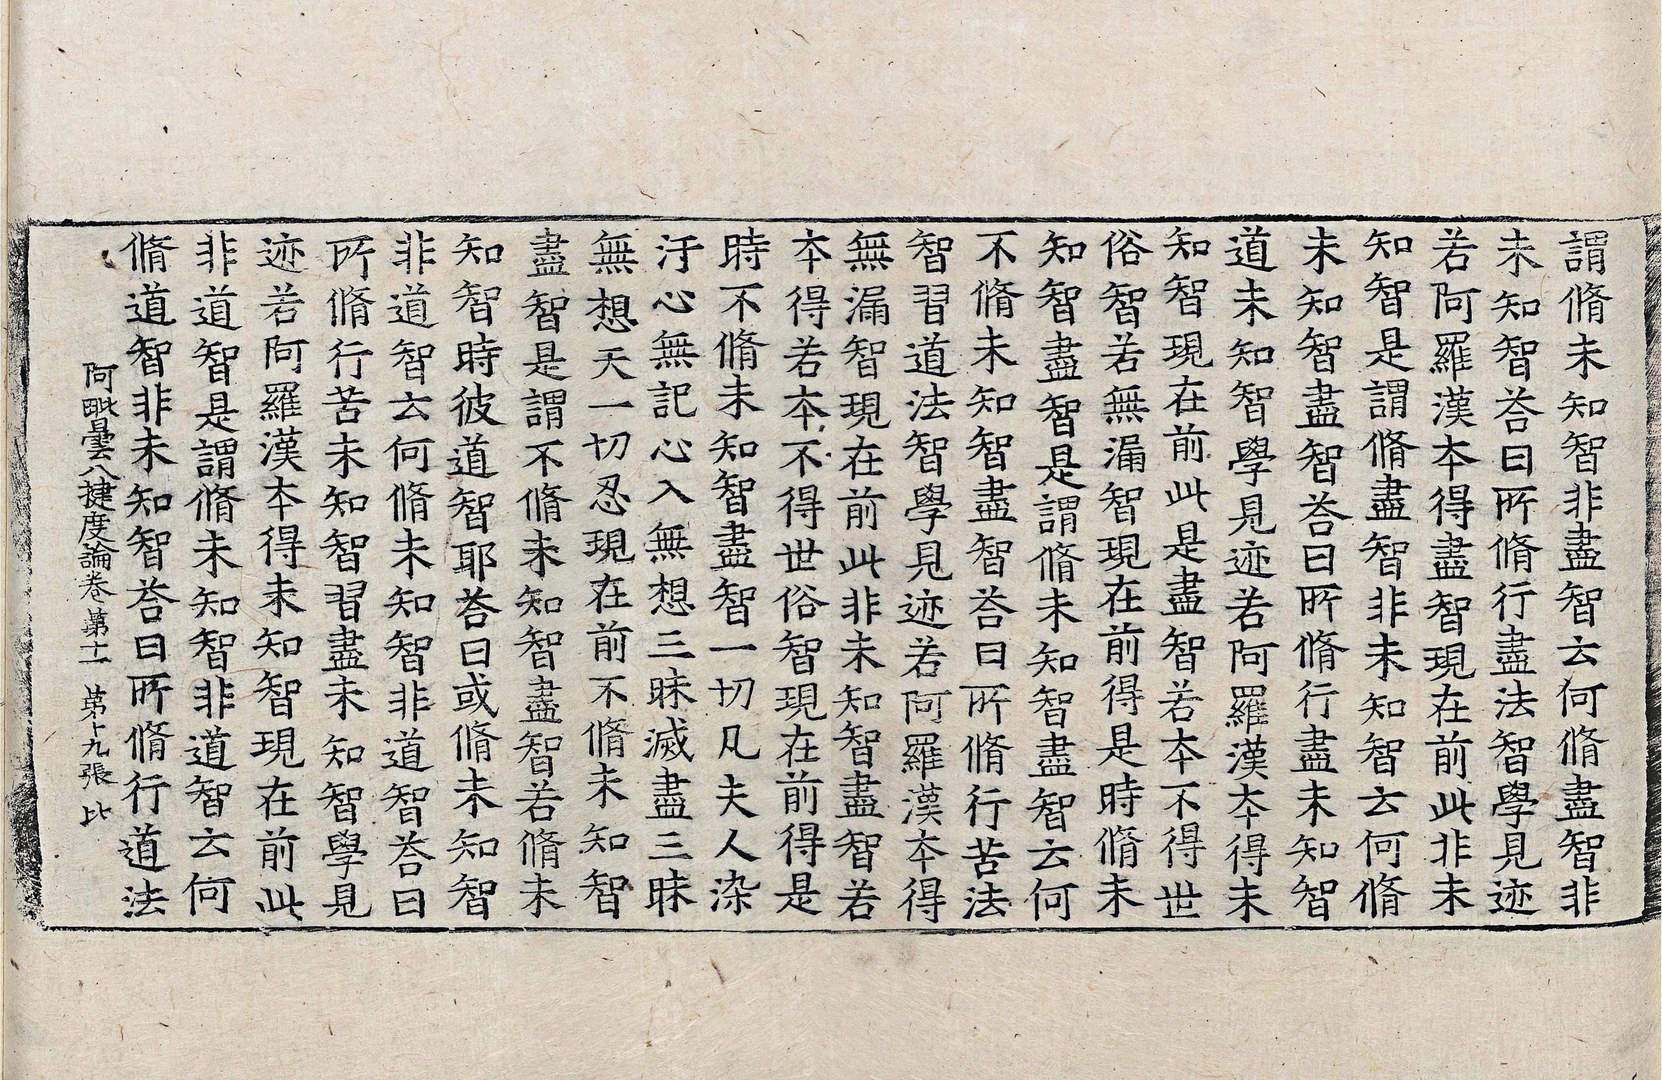 謂脩未知智非盡智云何脩盡智非
未知智荅曰所脩行盡法智學見迹
若阿羅漢本得盡智現在前此非未
知智是謂脩盡智非未知智云何脩
未知智盡智荅曰所脩行盡未知智
道未知智學見迹若阿羅漢本得未
知智現在前此是盡智若本不得世
俗智若無漏智現在前得是時脩未
知智盡智是謂脩未知智盡智云何
不脩未知智盡智荅曰所脩行苦法
智習道法智學見迹若阿羅漢本得
無漏智現在前此非未知智盡智若
本得若本不得世俗智現在前得是
時不脩未知智盡智一切凡夫人染
汙心無記心入無想三昧滅盡三昧
無想天一切忍現在前不脩未知智
盡智是謂不脩未知智盡智若脩未
知智時彼道智耶荅曰或脩未知智
非道智云何脩未知智非道智荅曰
所脩行苦未知智習盡未知智學見
迹若阿羅漢本得未知智現在前此
非道智是謂脩未知智非道智云何
脩道智非未知智荅曰所脩行道法
阿毗曇八揵度論卷第十一 第十九張 比